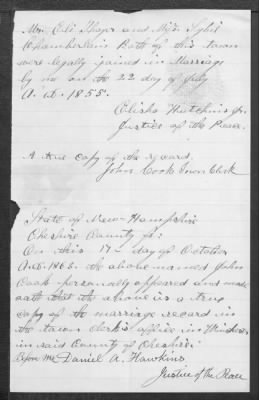 Mr. Eli Thayer and Miss Sybil
Chamberlain Both of this town
were legally joined in Marriage
by me on the 22 day of July
A.D. 1855.
Elisha Hutchins Jr.
Justice of the Peace.
A true copy of the record.
John Cook Town Clerk
State of New-Hampshire
Cheshire County ss.
On this 17th day of October
A.D. 1868. the above named John
Cook personally appeared and made
oath that the above is a true
copy of the marriage record in
the town clerk's office in
in said County of Cheshire.
Before me Daniel A. Hawkins
Justice of the Peace